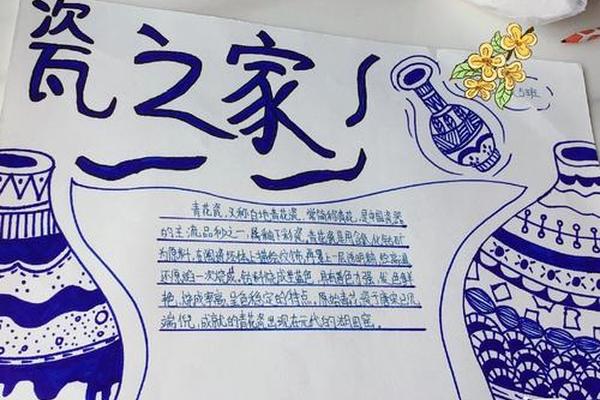 瓷之家
5班
青花瓷,又称白地青花瓷,常简称青花,是中国瓷器
的主流品种之一,属釉下彩瓷。青花瓷是用含氧化钴矿
为原料,在陶瓷坯体上描绘纹饰,再罩上一层透明釉,经高温
还原焰一次烧成。钴料烧成呈蓝色,具有着色力强、发色鲜
艳、烧成率高、呈色稳定的特点。原始青花瓷于唐宋已见
端倪,成就的青花瓷出现在元代的湖田窑。